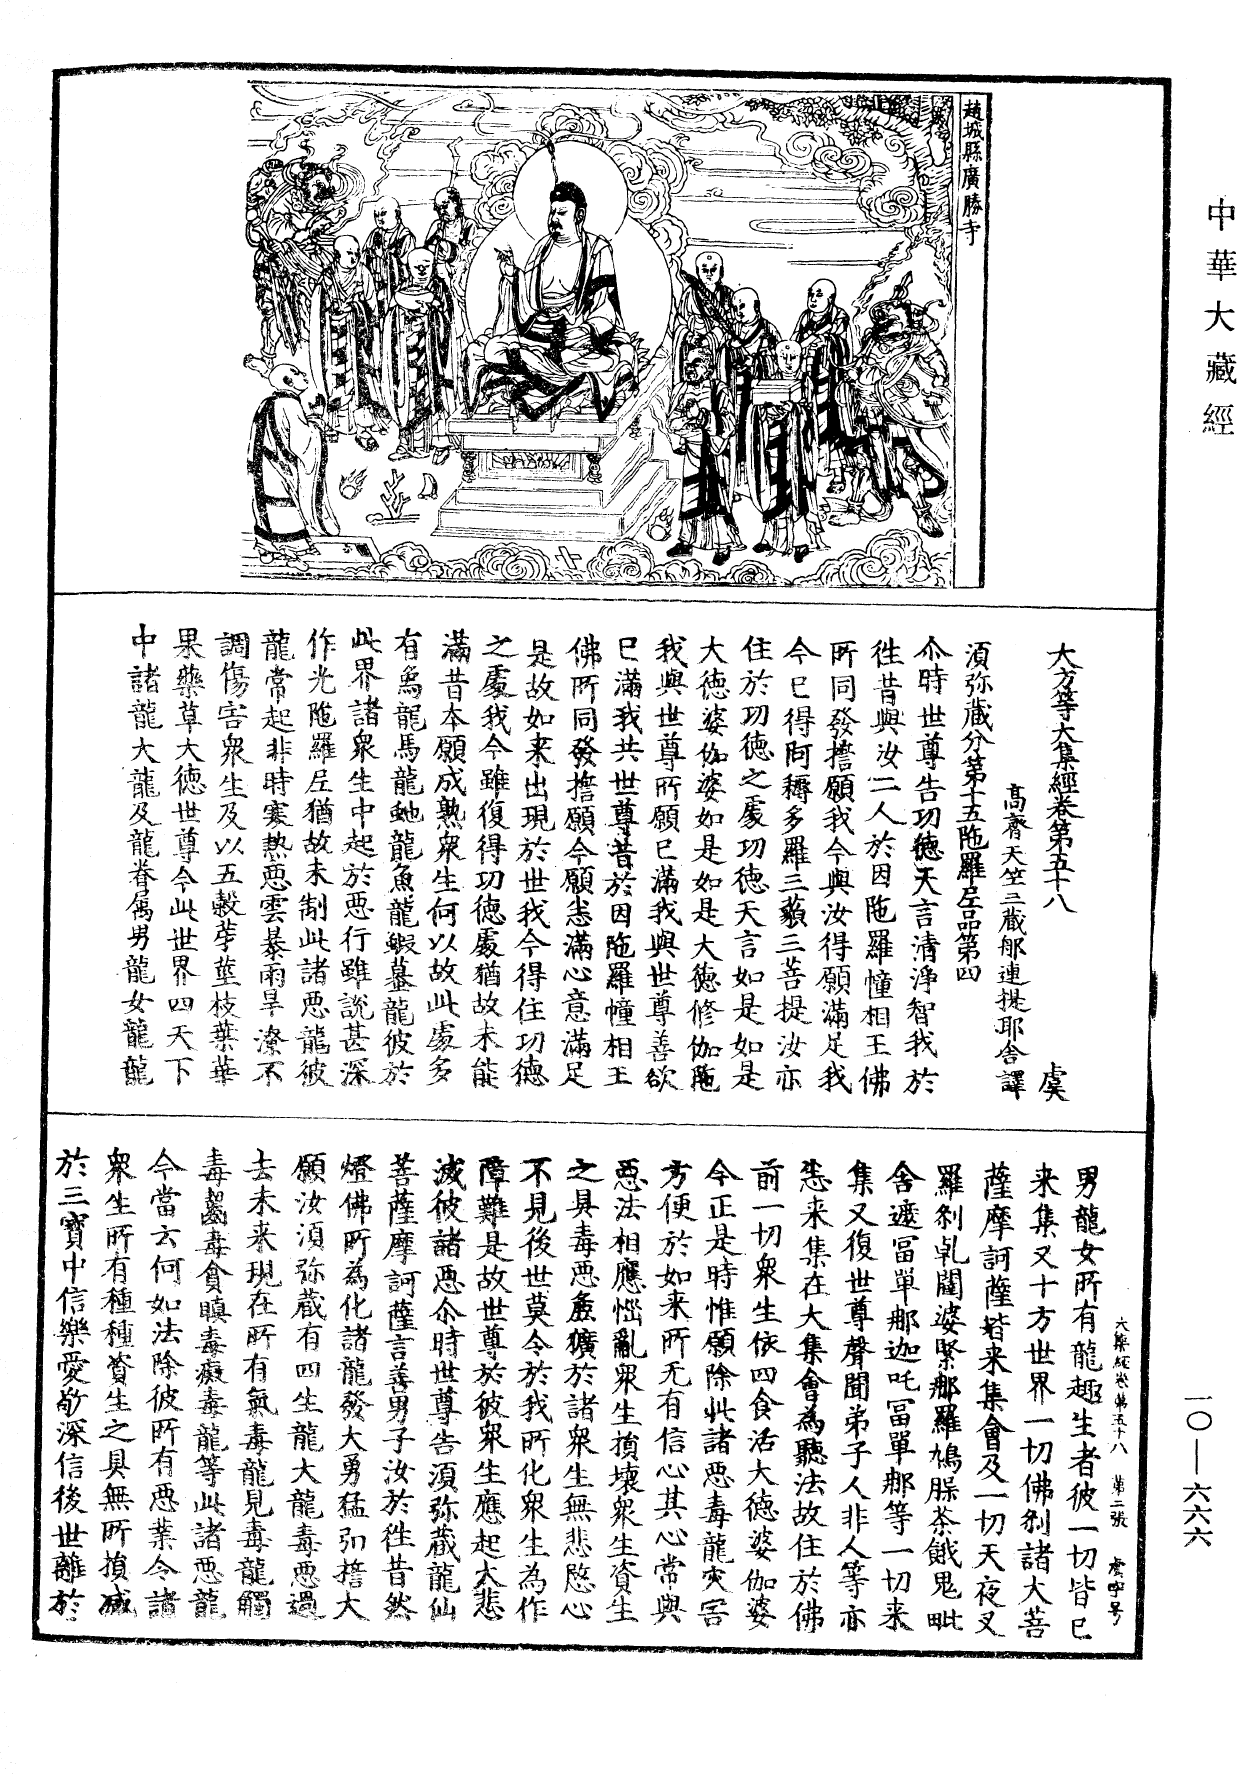 中華大藏經
趙城縣廣勝寺
大方等大集經卷第五十八　虞
高齊天竺三藏郍連提耶舍譯
湏弥藏分第十五陁羅尼品第四
尒時世尊告功徳天言清淨智我於
徃昔與汝二人於因陁羅幢相王佛
所同發擔願我今與汝得願滿足我
今已得阿耨多羅三藐三菩提汝亦
住於功徳之處功徳天言如是如是
大徳婆伽婆如是如是大徳修伽陁
我與世尊所願已滿我與世尊善欲
已滿我共世尊昔於因陁羅幢相王
佛所同發擔願今願悉滿心意滿足
是故如来出現於世我今得住功徳
之處我今雖復得功徳處猶故未能
滿昔本願成熟衆生何以故此處多
有為龍馬龍虵龍魚龍蝦蟇龍彼於
此界諸衆生中起於惡行雖說甚深
作光陁羅尼猶故未制此諸惡龍彼
龍常起非時寒熱惡雲暴雨旱潦不
調傷害衆生及以五糓芽莖枝葉華
果藥草大徳世尊今此世界四天下
中諸龍大龍及龍眷属男龍女龍龍
男龍女所有龍趣生者彼一切皆已
来集又十方世界一切佛刹諸大菩
薩摩訶薩皆来集會及一切天夜叉
羅刹乹闥婆緊郍羅鳩槃茶餓鬼毗
舍遮冨單郍迦吒冨單郍等一切来
集又復世尊聲聞弟子人非人等亦
悉来集在大集會為聽法故住於佛
前一切衆生依四食活大徳婆伽婆
今正是時惟願除此諸惡毒龍灾害
方便於如来所无有信心其心常與
惡法相應惱亂衆生損壞衆生資生
之具毒惡麁獷於諸衆生無悲愍心
不見後世莫令於我所化衆生為作
障難是故世尊於彼衆生應起大悲
滅彼諸惡尒時世尊告湏弥藏龍仙
菩薩摩訶薩言善男子汝於徃昔然
燈佛所為化諸龍發大勇猛弘擔大
願汝湏弥藏有四生龍大龍毒惡過
去未来現在所有氣毒龍見毒龍觸
毒齧毒貪瞋毒癡毒龍等此諸惡龍
今當云何如法除彼所有惡業令諸
衆生所有種種資生之具無所損減
於三寶中信樂愛敬深信後世離於
大集經卷第五十八　第二張　虞字号
一〇—六六六